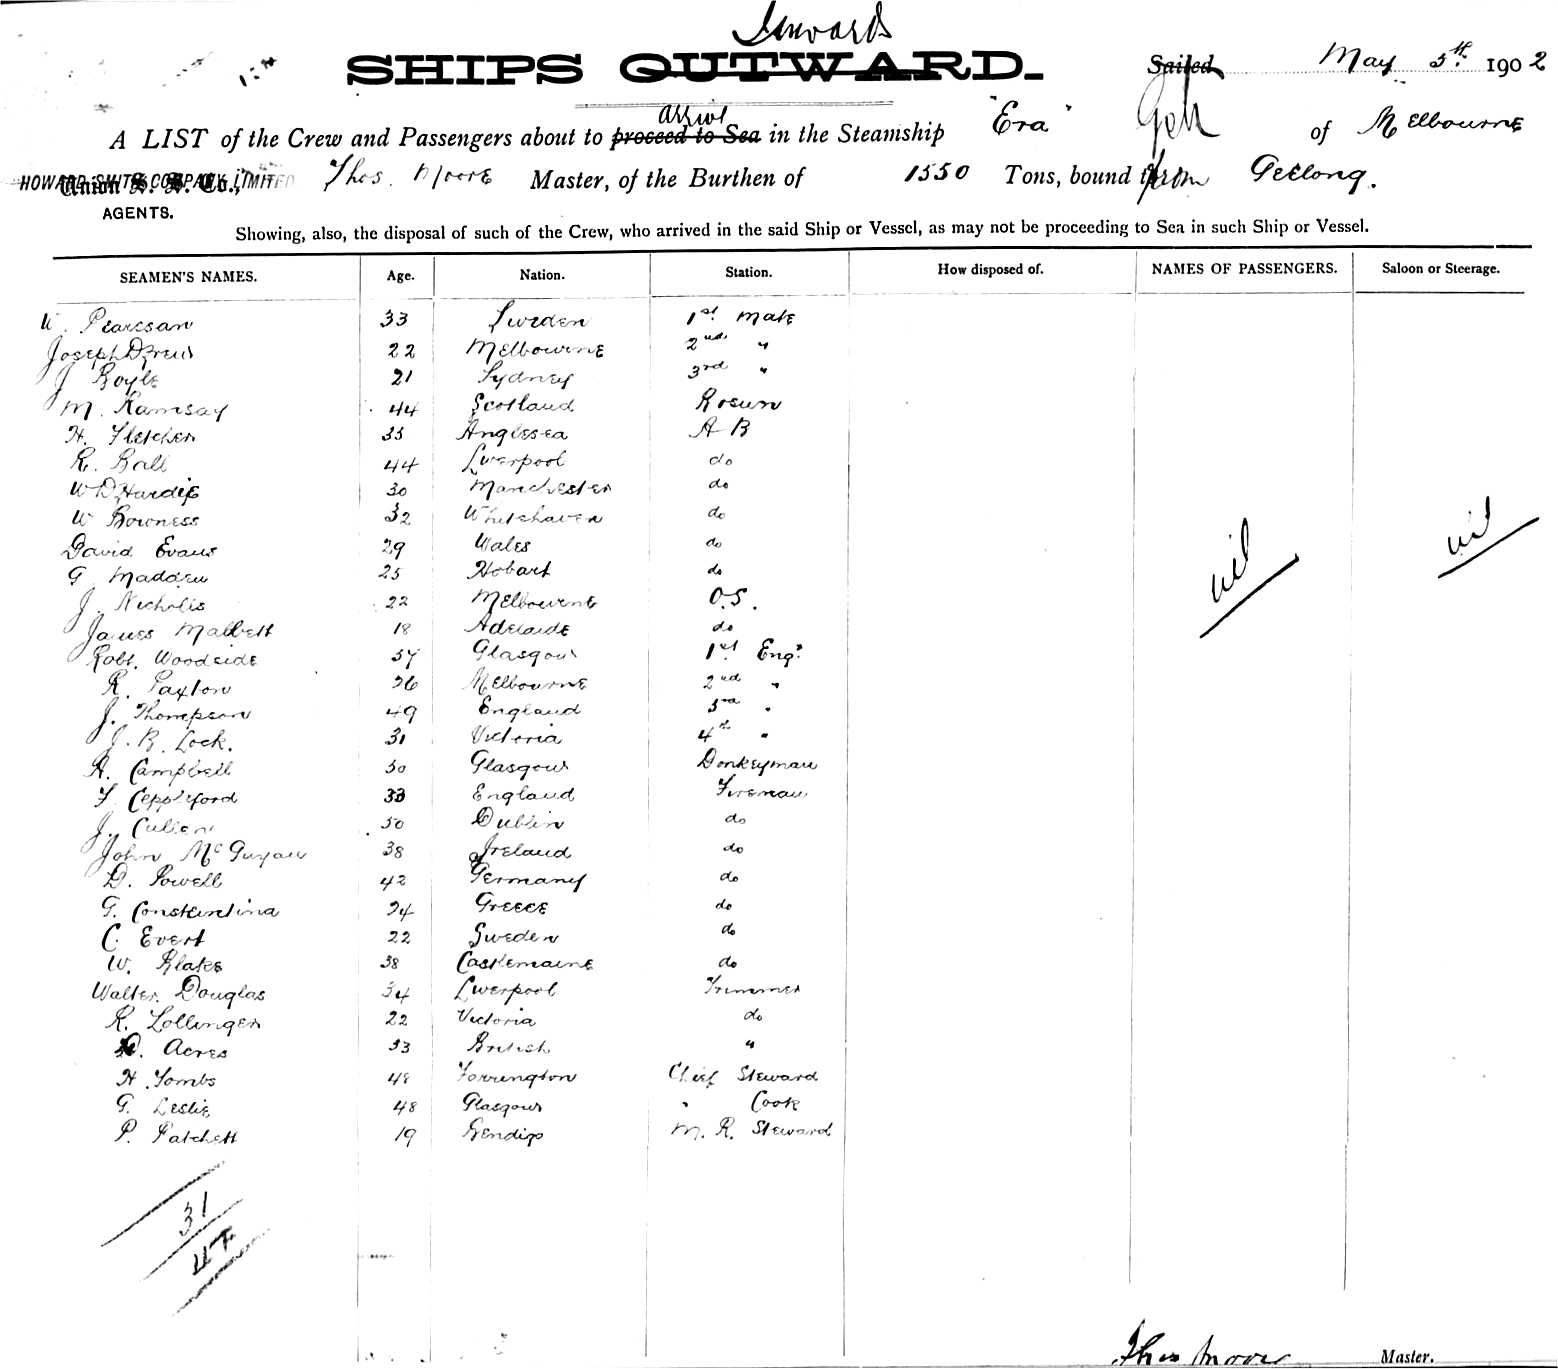 Inwards
SHIPS OUTWARD. Sailed May 5th. 1902
arrive
A LIST of the Crew and Passengers about to proceed to Sea in the Steamship "Era" of Melbourne
HOWARD SMITH COMPANY LIMITED Union S. S. Co., Thos. Moore Master, of the Burthen of 1550 Tons, bound from Geelong.
AGENTS.
Showing, also, the disposal of such of the Crew, who arrived in the said Ship or Vessel, as may not be proceeding to Sea in such Ship or Vessel.
SEAMEN'S NAMES. Age. Nation. Station. How disposed of. NAMES OF PASSENGERS. Saloon or Steerage.
W. Pearsson 33 Sweden 1st. Mate
Joseph Drew 22 Melbourne 2nd "
J Boyle 21 Sydney 3rd "
M. Ramsay 44 Scotland Bosun
H. Fletcher 35 Anglesea A B
R. Ball 44 Liverpool do
W D Hardie 30 Manchester do
W Bowness 32 Whitehaven do
David Evans 29 Wales do
G Madden 25 Hobart do
J. Nicholls 22 Melbourne O.S.
James Malbett 18 Adelaide do
Robt. Woodside 37 Glasgow 1st Engr.
R. Paxton 26 Melbourne 2nd "
J. Thompson 49 England 3rd "
J. B. Lock. 31 Victoria 4th "
A. Campbell 50 Glasgow Donkeyman
F. Ceppleford 33 England Fireman
J. Cullen 50 Dublin do
John McGuyau 38 Ireland do
D. Powell 42 Germany do
G. Constantina 24 Greece do
C. Evert 22 Sweden do
W. Blake 38 Castlemaine do
Walter Douglas 34 Liverpool Trimmer
R. Zollinger 22 Victoria do
D. Acres 33 British "
H. Tombs 48 Farrington Chief Steward
G. Leslie 48 Glasgow " Cook
P. Patchett 19 Bendigo M. R. Steward
nil nil
31
Thos Moore Master.